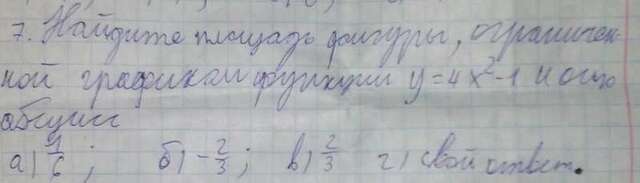 7. Найдите площадь фигуры, ограничен-
ной графиком функции y=4x²-1 и осью
абсцисс
а) 1/6; б) -2/3; в) 2/3 г) свой ответ.